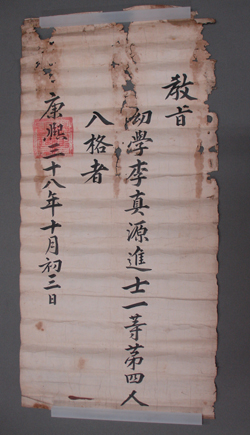 敎旨
幼學李真源進士一等第四人
入格者
康熙三十八年十月初三日